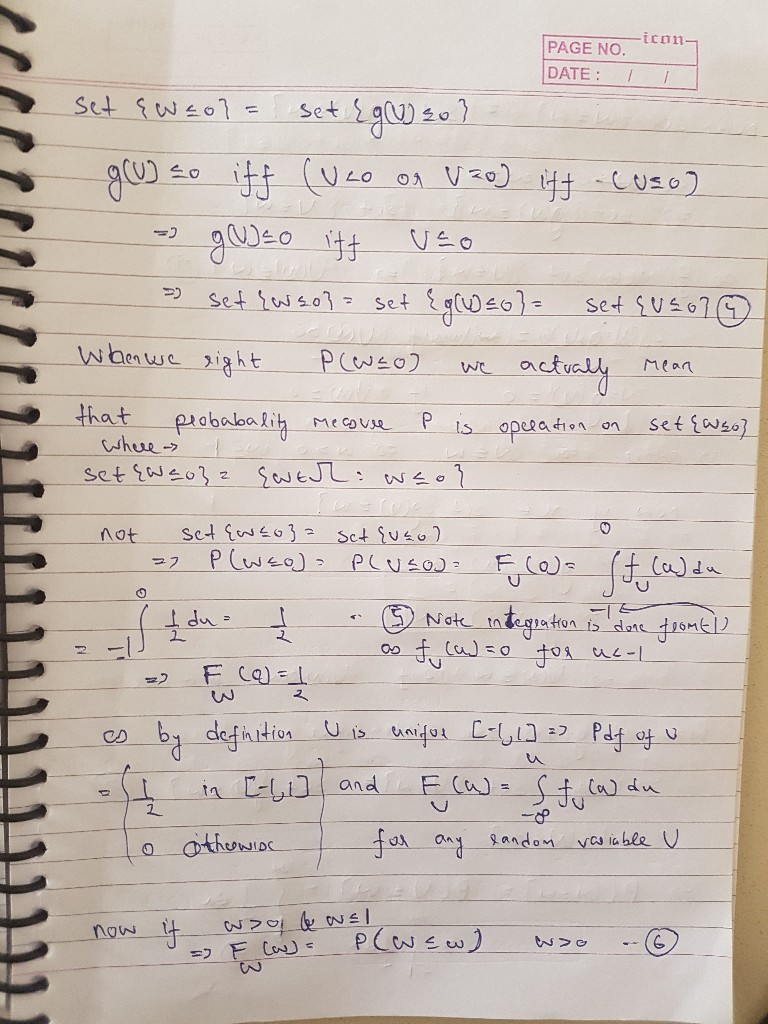 icon
PAGE NO.
DATE : / /
set {W ≤ 0} = set {g(U) ≤ 0}
g(U) ≤ 0 iff (U < 0 or U = 0) iff (U ≤ 0)
=> g(U) ≤ 0 iff U ≤ 0
=> set {W ≤ 0} = set {g(U) ≤ 0} = set {U ≤ 0} (4)
When we right P(W ≤ 0) we actually mean
that probabality measure P is operation on set {W ≤ 0}
where →
set {W ≤ 0} = {w ∈ Ω : w ≤ 0}
not set {W ≤ 0} = set {U ≤ 0}
=> P(W ≤ 0) = P(U ≤ 0) = F_U(0) = ∫_{-1}^{0} f_U(u) du
= ∫_{-1}^{0} 1/2 du = 1/2 .. (5) Note integration is done from (-1)
as f_U(u) = 0 for u < -1
=> F_W(0) = 1/2
as by definition U is unifor [-1,1] => Pdf of U
= { 1/2 in [-1,1] and F_U(u) = ∫_{-∞}^{u} f_U(u) du
0 otherwise } for any random variable U
now if w > 0, & w ≤ 1
=> F_W(w) = P(W ≤ w) w > 0 -- (6)